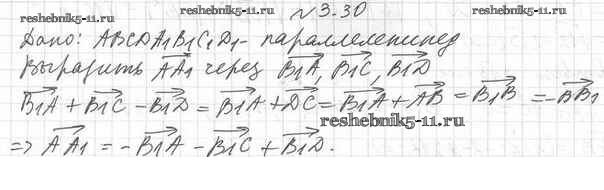 reshebnik5-11.ru №3.30 reshebnik5-11.ru
Дано: ABCDA₁B₁C₁D₁- параллелепипед
Выразить AA₁ через B₁A, B₁C, B₁D
B₁A + B₁C - B₁D = B₁A + DC = B₁A + AB = B₁B = -BB₁
reshebnik5-11.ru
=> AA₁ = -B₁A - B₁C + B₁D.